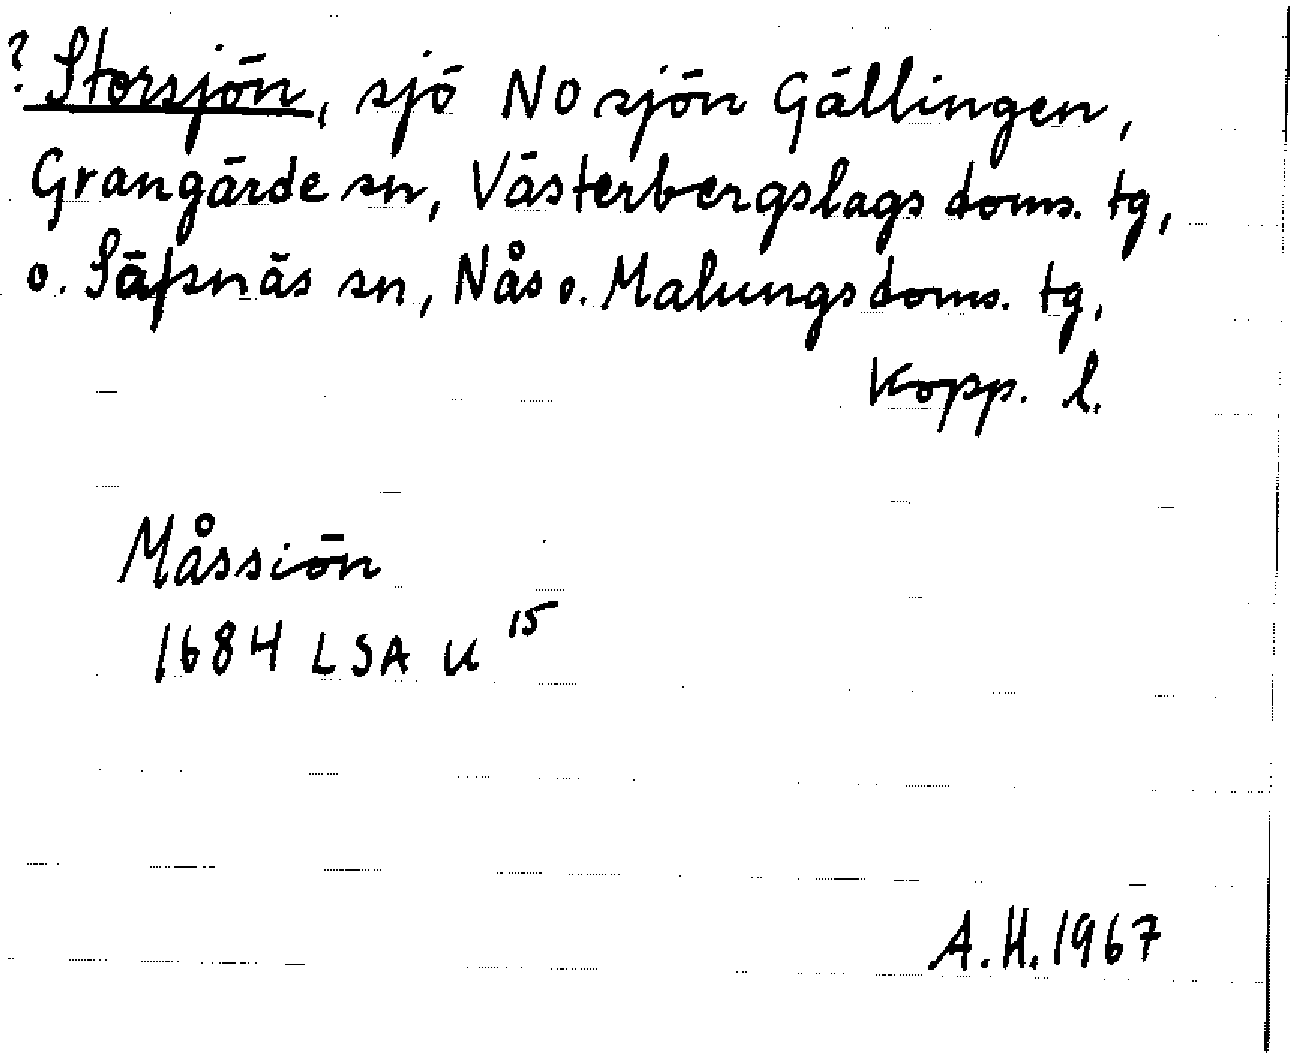 ? Storsjön, sjö NO sjön Gällingen,
Grangärde sn, Västerbergslags doms. tg,
o. Säfsnäs sn, Nås o. Malungs doms. tg.
Kopp. l.
Måssiön
1684 LSA U 15
A.H. 1967